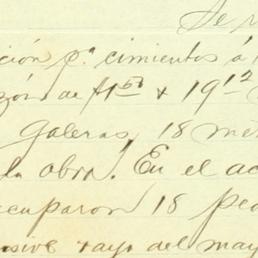 Se
ción pª cimientos á
zón de $1 50 x 19 12
galeras, 18
la obra. En el ac
cuparon 18 peo
sive rayo del may